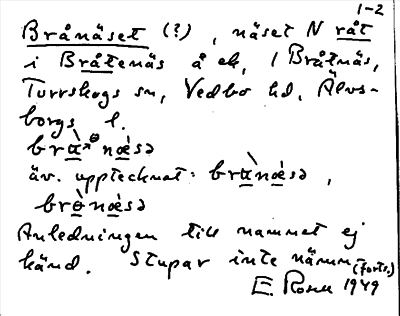 1-2
Brånäset (?), näset N råt
i Bråtenäs å ek, 1 Bråtnäs,
Torrskogs sn, Vedbo hd, Älvs-
borgs l.
äv. upptecknat: brànǽsə,
brènǽsə
Anledningen till namnet ej
känd. Stupar inte nämn (forts.)
E. Rosell 1949